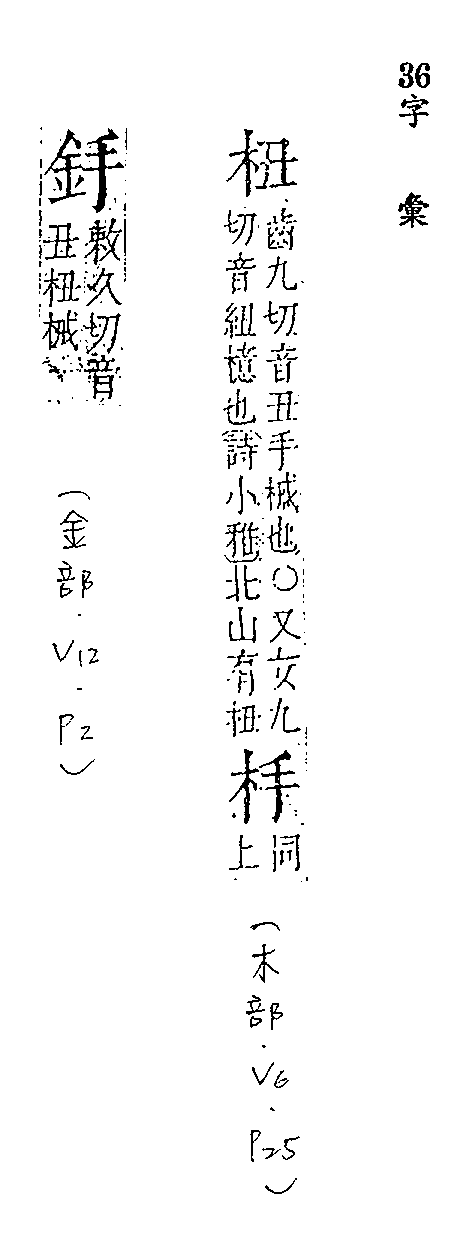 36字彙
杻
齒九切音丑手械也○又女九
切音紐檍也詩小雅北山有杻
杽
同
上
(木部.V6.P25)
敕久切音
丑杻械
(金部.V12.P2)